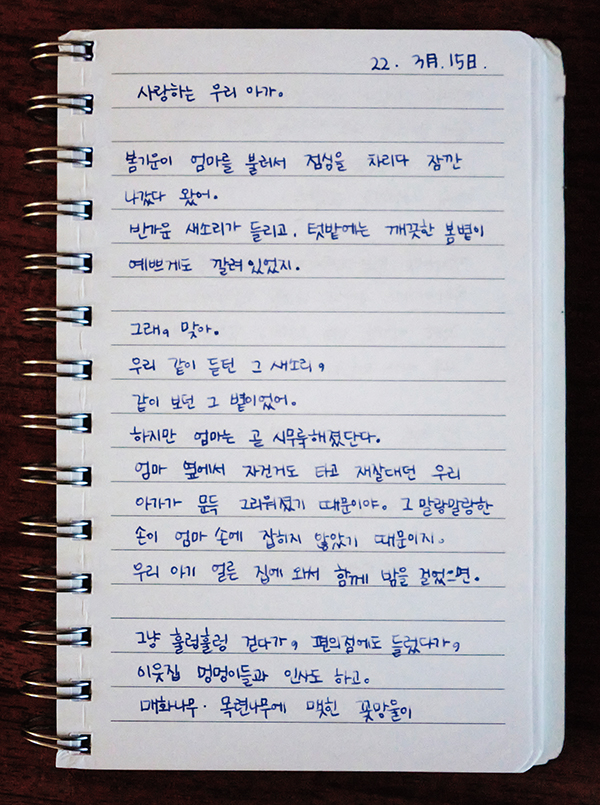 22. 3月.15日.
사랑하는 우리 아가.
봄기운이 엄마를 불러서 점심을 차리다 잠깐
나갔다 왔어.
반가운 새소리가 들리고, 텃밭에는 깨끗한 봄볕이
예쁘게도 깔려있었지.
그래, 맞아.
우리 같이 듣던 그 새소리,
같이 보던 그 볕이었어.
하지만 엄마는 곧 시무룩해졌단다.
엄마 옆에서 자전거도 타고 재잘대던 우리
아가가 문득 그리워졌기 때문이야. 그 말랑말랑한
손이 엄마 손에 잡히지 않았기 때문이지.
우리 아기 얼른 집에 와서 함께 밤을 걸었으면.
그냥 훌렁훌렁 걷다가, 편의점에도 들렀다가,
이웃집 멍멍이들과 인사도 하고.
매화나무. 목련나무에 맺힌 꽃망울이